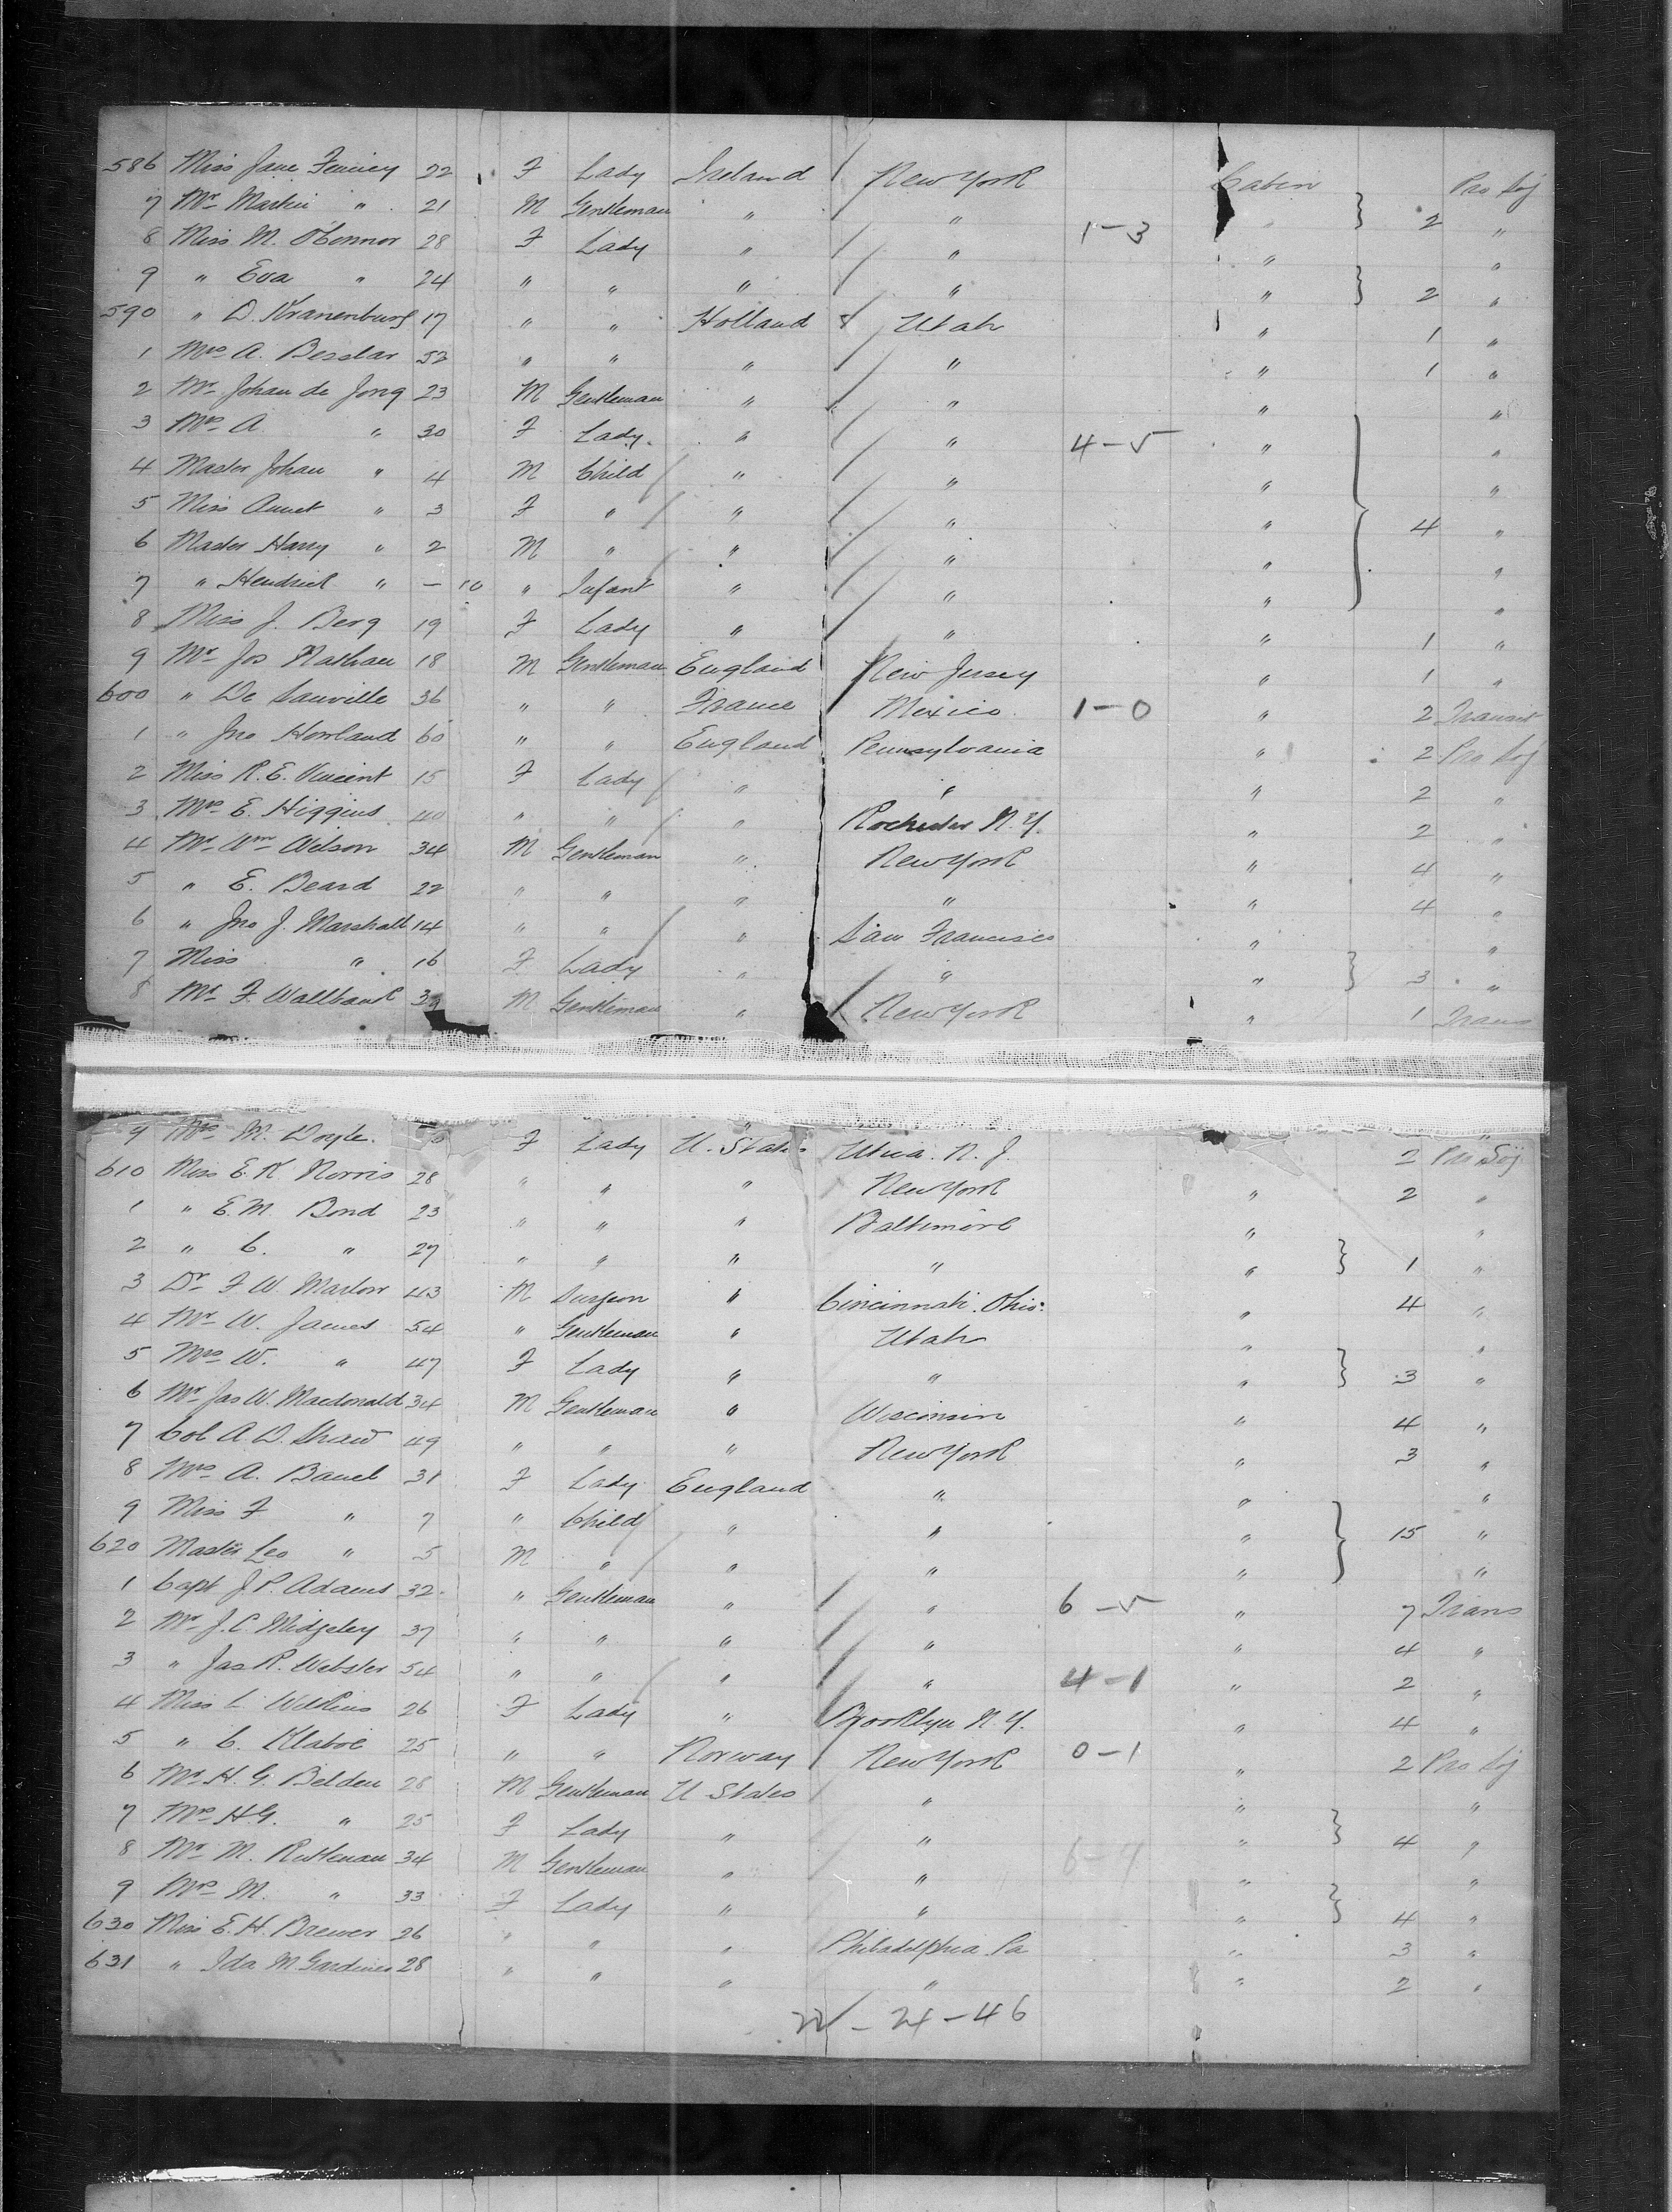 586 Miss Jane 22 F Lady Ireland / New York Cabin Pro Soj
7 Mr Martin " 21 M Gentleman " " " } 2 "
8 Miss M. O'Connor 28 F Lady " / " 1-3 " "
9 " Eva " 24 " " " / " " } 2 "
590 " D. Kranenburg 17 " " Holland Utah " 1 "
1 Mrs A. Besslar 52 " " " / " " 1 "
2 Mr Johan de Jong 23 M Gentleman " / " " "
3 Mrs A. " 30 F Lady. " / " 4-5 " "
4 Master Johan " 4 M Child / " / " " "
5 Miss Annet " 3 F " / " / " " } 4 "
6 Master Harry " 2 M " / " / " " "
7 " Hendrick " - 10 " Infant " / " " "
8 Miss J. Berg 19 F Lady " / " " 1 "
9 Mr Jos Nathan 18 M Gentleman England / New Jersey " 1 "
600 " De Sauville 36 " " France Mexico 1-0 " 2 Transit
1 " Jno Howland 60 " " England Pennsylvania " 2 Pro Soj
2 Miss R. E. Vincent 15 F Lady / " " " 2 "
3 Mrs E. Higgins 40 " " / " Rochester N.Y. " 2 "
4 Mr Wm Wilson 34 M Gentleman " New York " 4 "
5 " E. Beard 22 " " " " " 4 "
6 " Jno J. Marshall 14 " " / " San Francisco " "
7 Miss " 16 F Lady " " " } 3 "
8 Mr F. Wallbank M Gentleman " / New York " 1 Trans
9 Mrs M. Doyle. F Lady U. States Utica. N. J. 2 Pro Soj
610 Miss E. K Norris 28 " " " New York " 2 "
1 " E. M. Bond 23 " " " Baltimore " "
2 " C. " 27 " " " " " } 1 "
3 Dr F. W. Marlow 43 M Surgeon " Cincinnati. Ohio. " 4 "
4 Mr W. James 54 " Gentleman " Utah " "
5 Mrs W. " 47 F Lady " " " } 3 "
6 Mr Jas W. Macdonald 34 M Gentleman " Wisconsin " 4 "
7 Col A. D. Shaw 49 " " " New York " 3 "
8 Mrs A. 31 F Lady England " " "
9 Miss F " 7 " Child / " " " } 15 "
620 Master Leo " 5 M " / " " " "
1 Capt J. P. Adams 32 " Gentleman " / " 6-5 " 7 Trans
2 Mr J. C. Midgeley 37 " " " / " " 4 "
3 " Jas R. Webster 54 " " / " / " 4-1 " 2 "
4 Miss L. Wilkins 26 F Lady " / Brooklyn N.Y. " 4 "
5 " C. Klaboe 25 " " Norway / New York 0-1 " 2 Pro Soj
6 Mr H. G. Belden 28 M Gentleman U States " " "
7 Mrs H. G. " 25 F Lady " " " } 4 "
8 Mr M. 34 M Gentleman " " 6-4 " "
9 Mrs M. " 33 F Lady " " " } 4 "
630 Miss E. H. Brewer 26 " " " Philadelphia Pa " 3 "
631 " Ida M. Gardiner 28 " " " " " 2 "
22-24-46